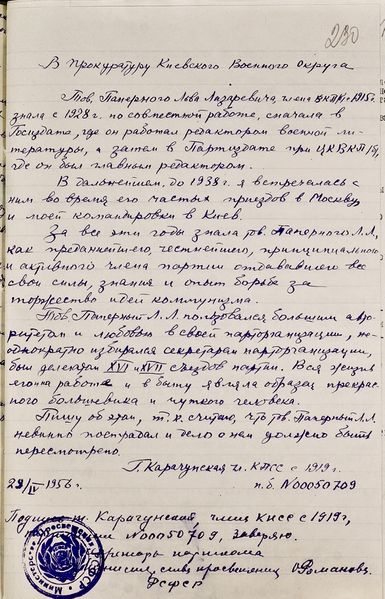 230
В Прокуратуру Киевского Военного Округа
Тов. Паперного Льва Лазаревича, члена ВКП(б) с 1915г.
знала с 1928 г. по совместной работе, сначала в
Госиздате, где он работал редактором военной ли-
тературы, а затем в Партиздате при ЦК ВКП(б),
где он был главным редактором.
В дальнейшем, до 1938 г. я встречалась с
ним во время его частых приездов в Москву
и моей командировки в Киев.
За все эти годы знала тов. Паперного Л.Л.,
как преданнейшего, честнейшего, принципиального
и активного члена партии отдававшего все
свои силы, знания и опыт борьбе за
торжество идей коммунизма.
Тов. Паперный Л.Л. пользовался большим авто-
ритетом и любовью в своей парторганизации, не-
однократно избирался секретарем парторганизации,
был делегатом XVI и XVII съездов партии. Вся жизнь
его на работе и в быту являла образец прекрас-
ного большевика и чуткого человека.
Пишу об этом, т.к. считаю, что тов. Паперный Л.Л.
невинно пострадал и дело о нем должно быть
пересмотрено.
Г. Карачунская чл. КПСС с 1919г.
23/IV 1956 г. п.б. №00050709
Подпись т. Карачунской, члена КПСС с 1919г,
№00050709, заверяю.
парткома
просвещения О. Романова
РСФСР
Министерство Просвещения РСФСР